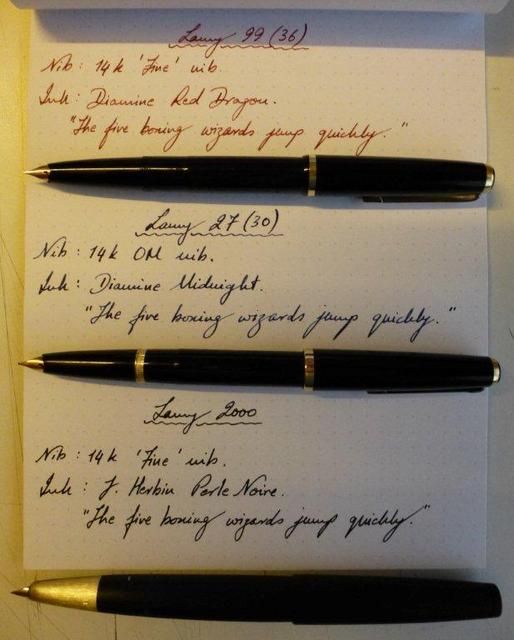 Lamy 99 (36)
Nib: 14k 'Fine' nib.
Ink: Diamine Red Dragon.
"The five boxing wizards jump quickly."
Lamy 27 (30)
Nib: 14k OM nib.
Ink: Diamine Midnight.
"The five boxing wizards jump quickly."
Lamy 2000
Nib: 14k 'Fine' nib.
Ink: J. Herbin Perle Noire.
"The five boxing wizards jump quickly."